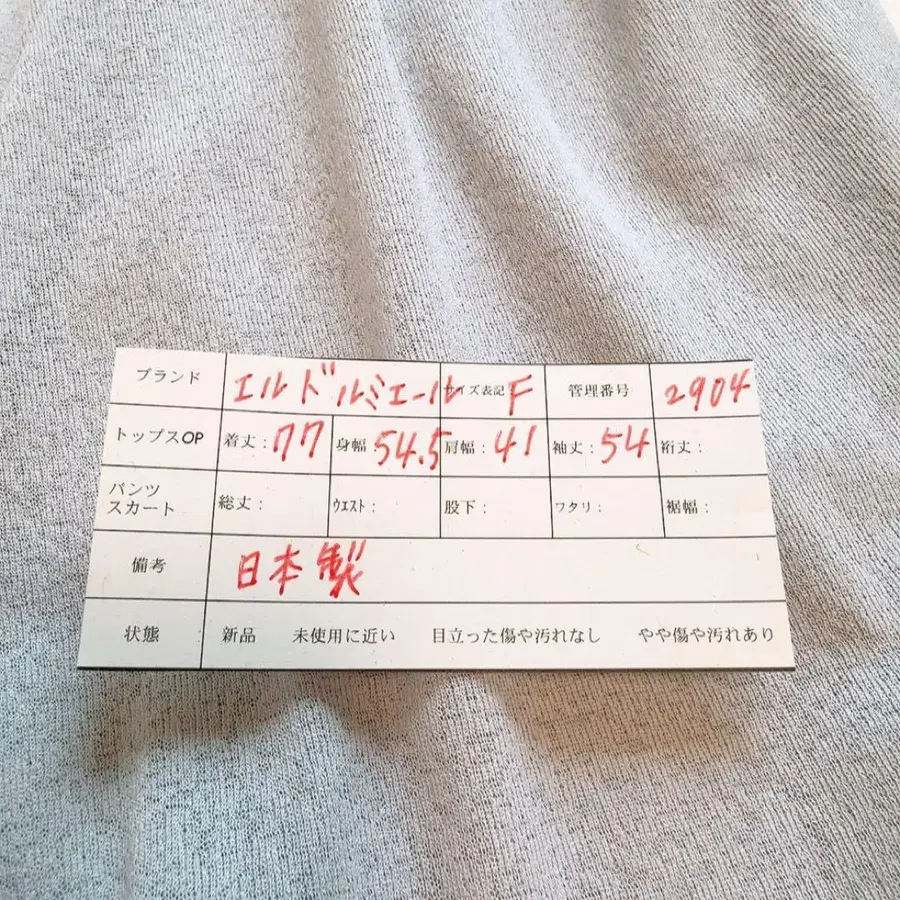 ブランド エルドルミエール サイズ表記 F 管理番号 2904
トップスOP 着丈：77 身幅：54.5 肩幅：41 袖丈：54 裄丈：
パンツ
スカート 総丈： ウエスト： 股下： ワタリ： 裾幅：
備考 日本製
状態 新品 未使用に近い 目立った傷や汚れなし やや傷や汚れあり